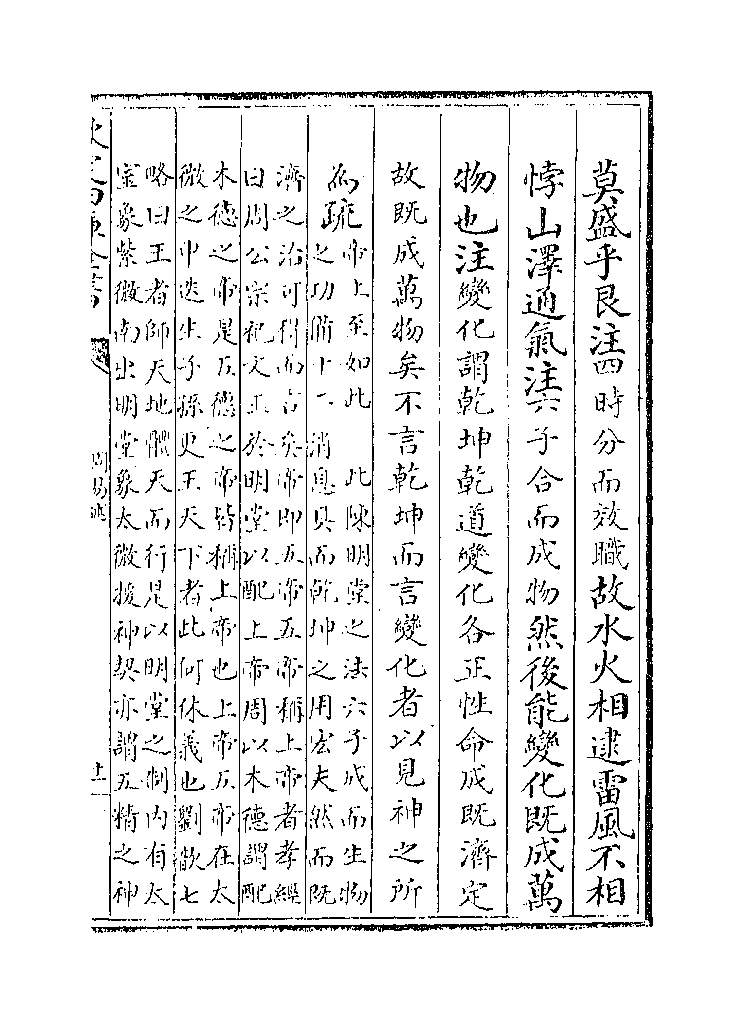 莫盛乎艮注四時分而效職故水火相逮雷風不相
悖山澤通氣注六子合而成物然後能變化既成萬
物也注變化謂乾坤乾道變化各正性命成既濟定
故既成萬物矣不言乾坤而言變化者以見神之所
為疏
帝上至如此　此陳明堂之法六子成而生物
之功備十二消息具而乾坤之用宏夫然而既
濟之治可得而言矣帝即五帝五帝稱上帝者孝經
曰周公宗祀文王於明堂以配上帝周以木德謂配
木德之帝是五德之帝皆稱上帝也上帝五帝在太
微之中迭生子孫更王天下者此何休義也劉歆七
略曰王者師天地體天而行是以明堂之制內有太
室象紫微南出明堂象太微援神契亦謂五精之神
周易述